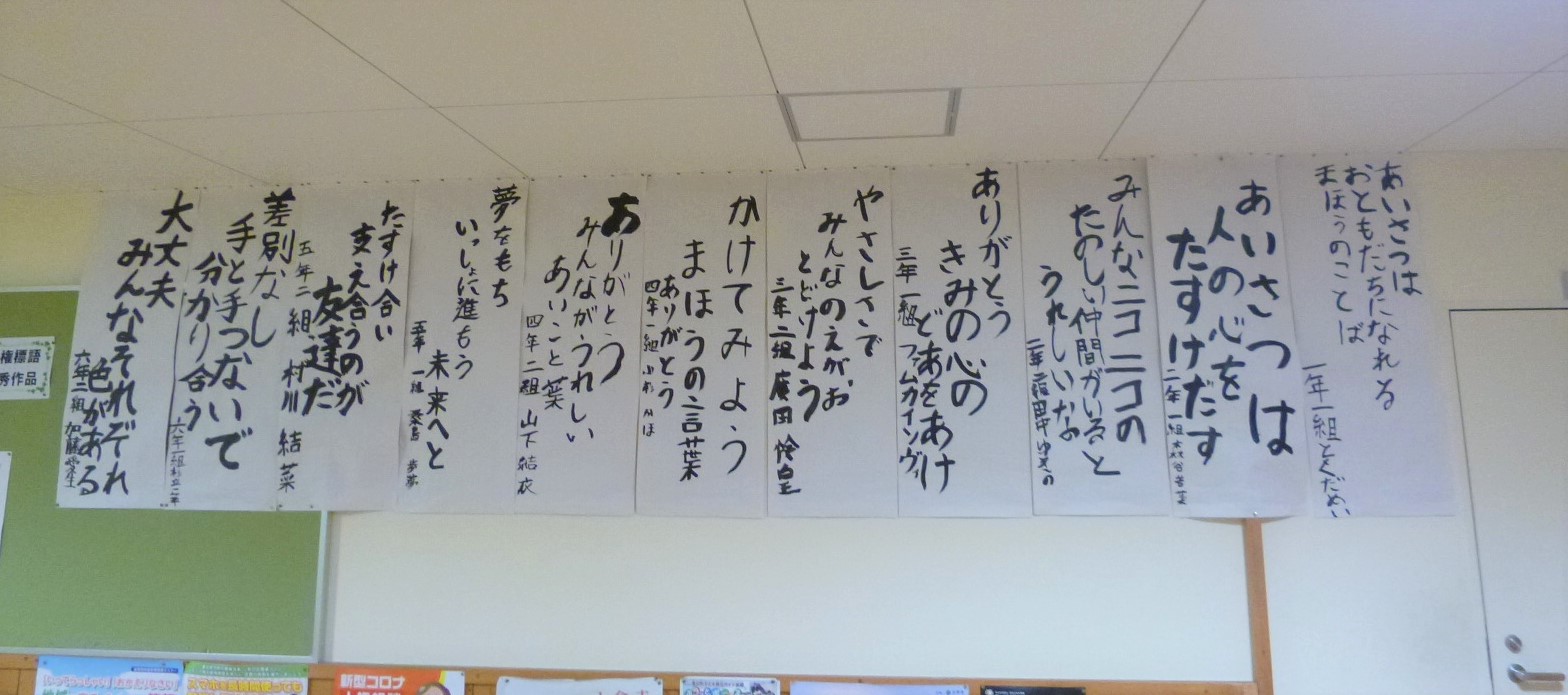 あいさつは
おともだちになれる
まほうのことば
一年一組 とくだめい
あいさつは
人の心を
たすけだす
二年一組
みんなニコニコの
たのしい仲間がいると
うれしいな
二年二組 田中ゆきの
ありがとう
きみの心の
どあをあけ
三年一組
やさしさで
みんなのえがお
とどけよう
三年二組 廣田
かけてみよう
まほうの言葉
ありがとう
四年一組
ありがとう
みんながうれしい
あいこと葉
四年二組 山下 結衣
夢をもち
いっしょに進もう
未来へと
五年一組
たすけ合い
支え合うのが
友達だ
五年二組 村川 結菜
差別なし
手と手つないで
分かり合う
六年一組
大丈夫
みんなそれぞれ
色がある
六年二組 加藤
権標語
秀作品
新型コロナ